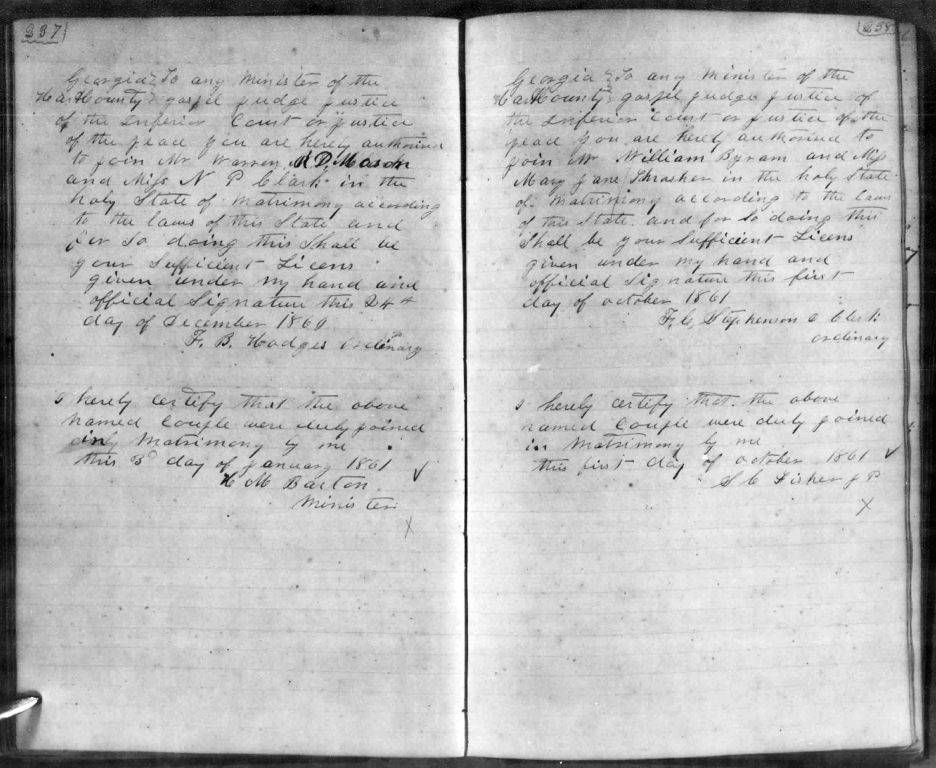 237
Georgia } To any Minister of the
Hart County } gospel judge justice
of the Inferior Court or justice
of the peace you are herey authorised
to join Mr Warren A. D. Mason
and Miss N P Clark in the
holy State of Matrimony according
to the laws of this State and
for So doing this Shall be
your Sufficient Licens
given under my hand and
official Signature this 24th
day of December 1860
F. B. Hodges ordinary
I herely certify that the above
named Couple were duly joined
in Matrimony by me
this 3d day of January 1861
H M Barton
Minister
X
238
Georgia } To any Minister of the
Hart County } gospel judge justice of
the Inferior Court or justice of the
peace you are herey authorised to
join Mr William Byram and Miss
Mary Jane Thrasher in the holy State
of Matrimony according to the laws
of this State and for So doing this
Shall be your Sufficient Licens
given under my hand and
official Signature this first
day of october 1861
F. C. Stephenson C Clerk
ordinary
I herely certify that the above
named Couple were duly joined
in Matrimony by me
this first day of october 1861
S C Fisher J P
X